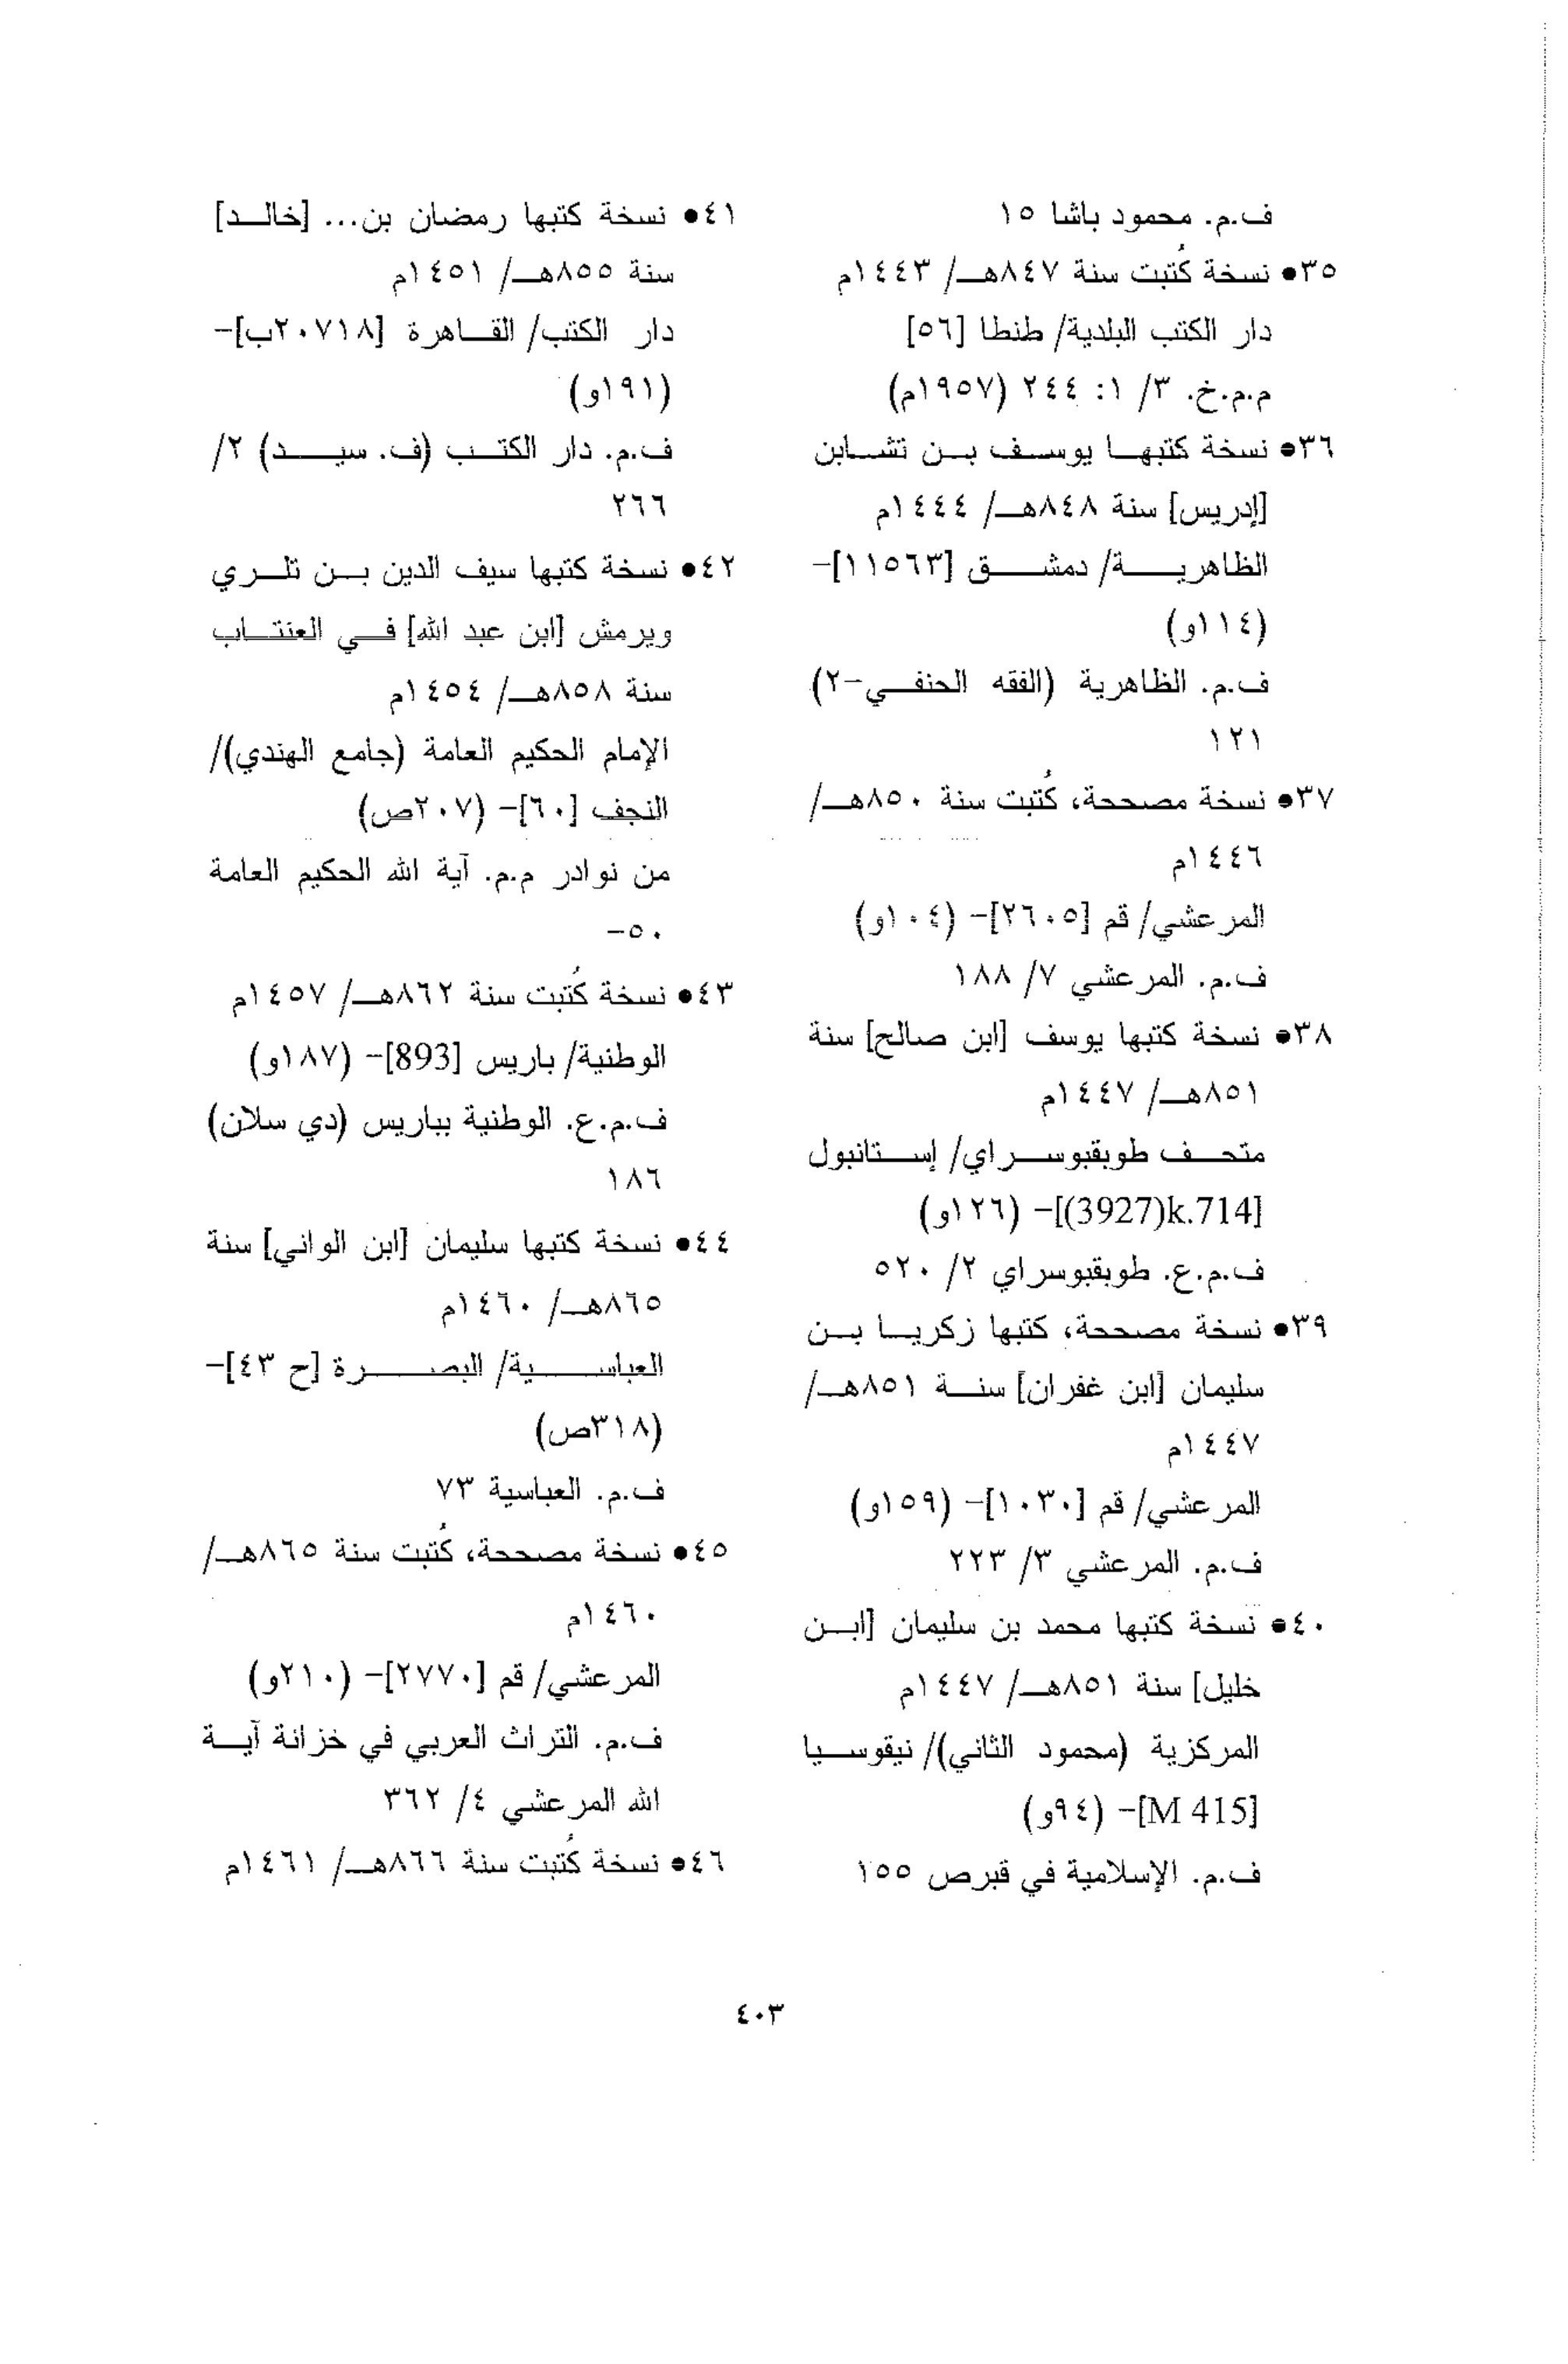 ف.م. محمود باشا ١٥
٣٥● نسخة كُتبت سنة ٨٤٧هـ/ ١٤٤٣م
دار الكتب البلدية/ طنطا [٥٦]
م.م.خ. ٣/ ١: ٢٤٤ (١٩٥٧م)
٣٦● نسخة كتبها يوسف بن تشابن
[إدريس] سنة ٨٤٨هـ/ ١٤٤٤م
الظاهرية/ دمشق [١١٥٦٣]-
(١١٤و)
ف.م. الظاهرية (الفقه الحنفي-٢)
١٢١
٣٧● نسخة مصححة، كُتبت سنة ٨٥٠هـ/
١٤٤٦م
المرعشي/ قم [٢٦٠٥]- (١٠٤و)
ف.م. المرعشي ٧/ ١٨٨
٣٨● نسخة كتبها يوسف [ابن صالح] سنة
٨٥١هـ/ ١٤٤٧م
متحف طوبقبوسراي/ إستانبول
[3927)k.714)]- (١٢٦و)
ف.م.ع. طوبقبوسراي ٢/ ٥٢٠
٣٩● نسخة مصححة، كتبها زكريا بن
سليمان [ابن غفران] سنة ٨٥١هـ/
١٤٤٧م
المرعشي/ قم [١٠٣٠]- (١٥٩و)
ف.م. المرعشي ٣/ ٢٢٣
٤٠● نسخة كتبها محمد بن سليمان [ابن
خليل] سنة ٨٥١هـ/ ١٤٤٧م
المركزية (محمود الثاني)/ نيقوسيا
[M 415]- (٩٤و)
ف.م. الإسلامية في قبرص ١٥٥
٤١● نسخة كتبها رمضان بن... [خالد]
سنة ٨٥٥هـ/ ١٤٥١م
دار الكتب/ القاهرة [٢٠٧١٨ب]-
(١٩١و)
ف.م. دار الكتب (ف. سيد) ٢/
٢٦٦
٤٢● نسخة كتبها سيف الدين بن تلري
ويرمش [ابن عبد الله] في العنتاب
سنة ٨٥٨هـ/ ١٤٥٤م
الإمام الحكيم العامة (جامع الهندي)/
النجف [٦٠]- (٢٠٧ص)
من نوادر م.م. آية الله الحكيم العامة
٥٠-
٤٣● نسخة كُتبت سنة ٨٦٢هـ/ ١٤٥٧م
الوطنية/ باريس [893]- (١٨٧و)
ف.م.ع. الوطنية بباريس (دي سلان)
١٨٦
٤٤● نسخة كتبها سليمان [ابن الواني] سنة
٨٦٥هـ/ ١٤٦٠م
العباسية/ البصرة [ح ٤٣]-
(٣١٨ص)
ف.م. العباسية ٧٣
٤٥● نسخة مصححة، كُتبت سنة ٨٦٥هـ/
١٤٦٠م
المرعشي/ قم [٢٧٧٠]- (٢١٠و)
ف.م. التراث العربي في خزانة آية
الله المرعشي ٤/ ٣٦٢
٤٦● نسخة كُتبت سنة ٨٦٦هـ/ ١٤٦١م
٤٠٣